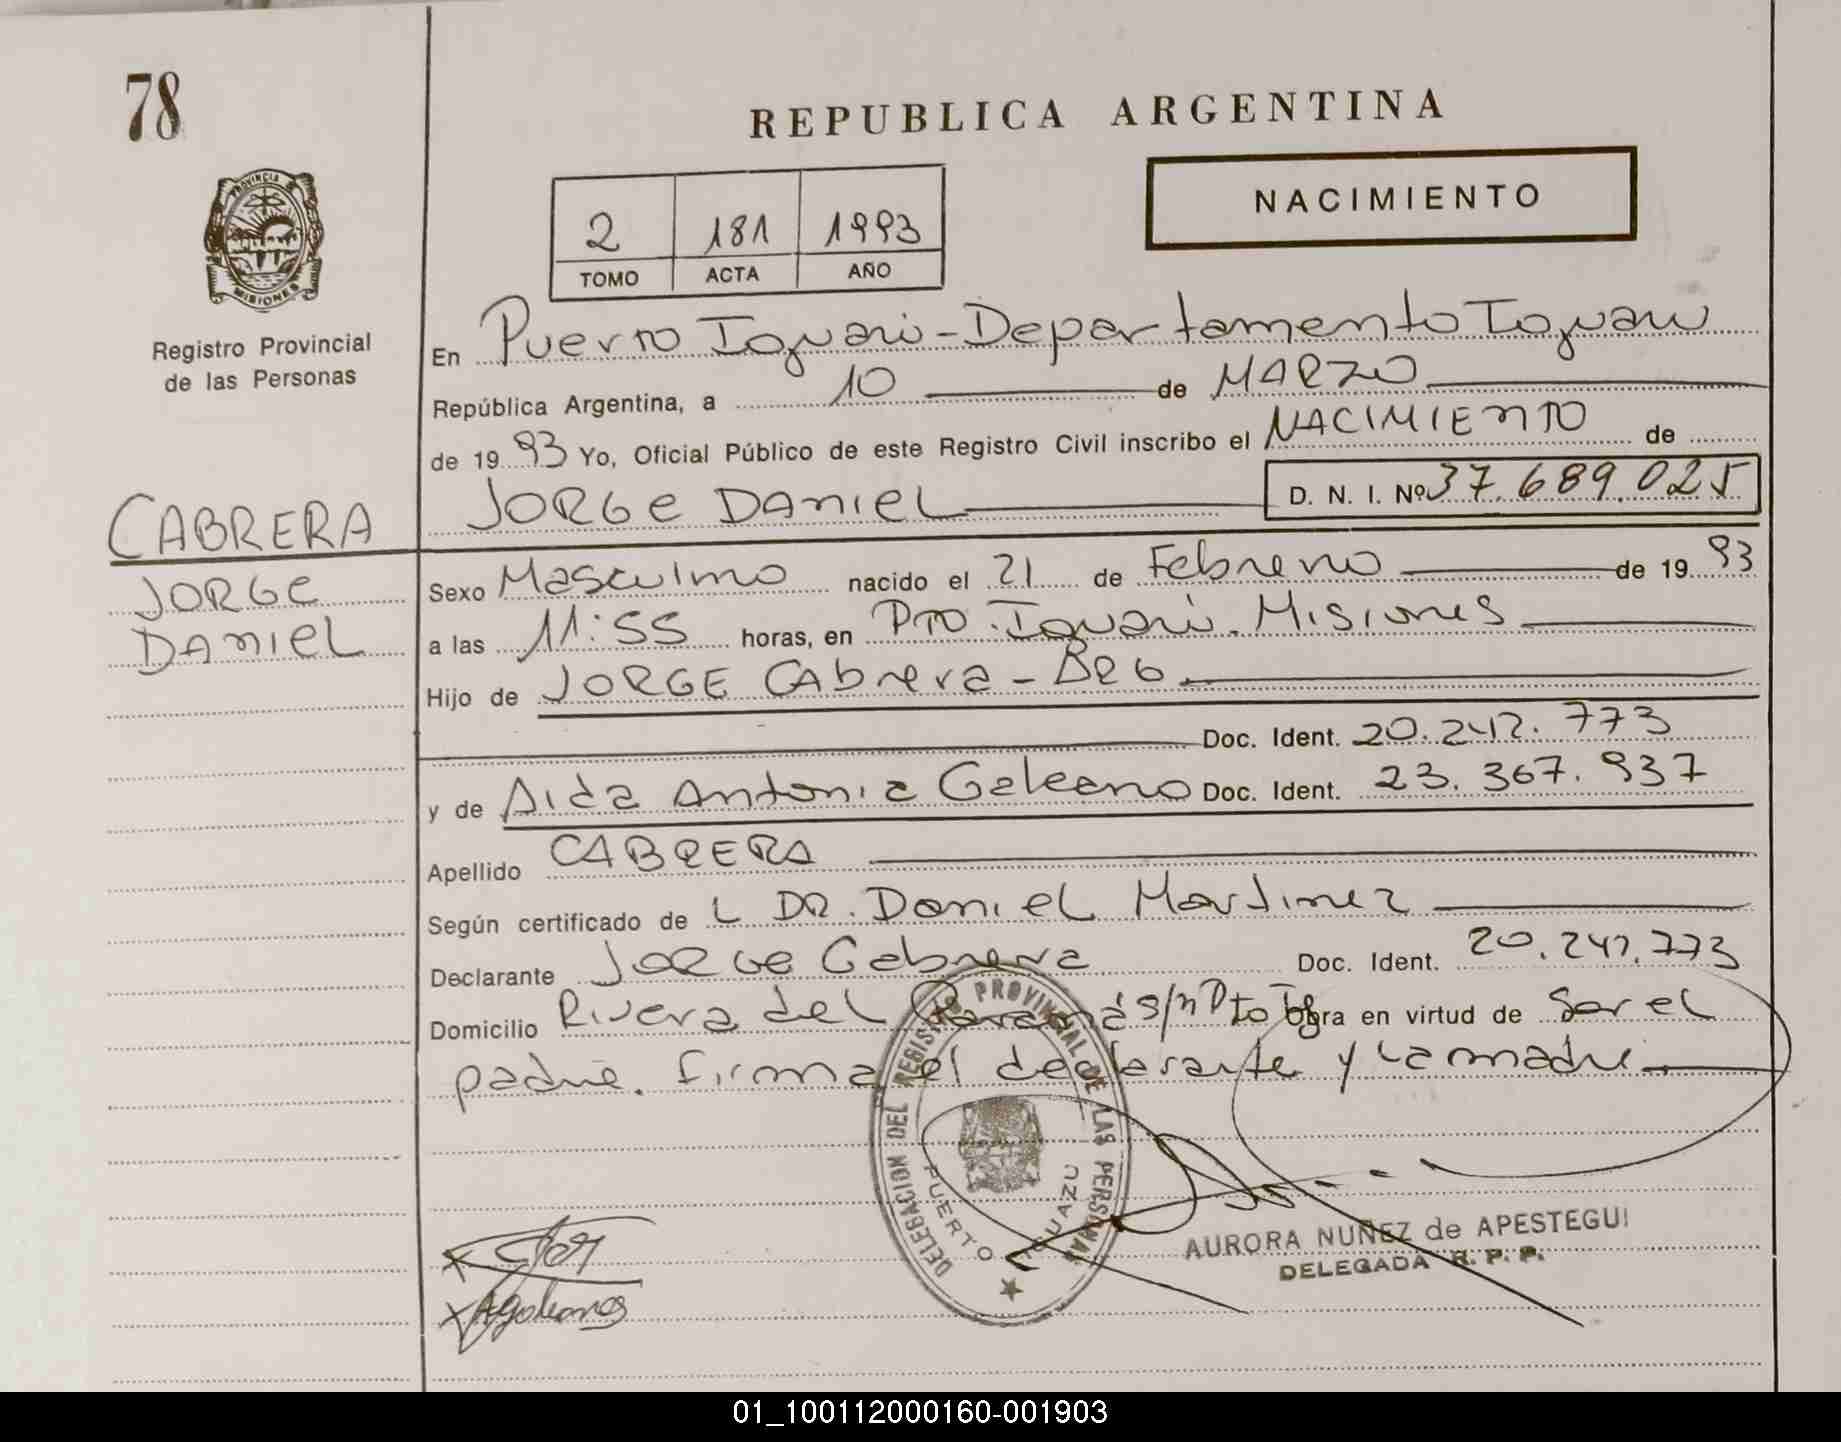 78
REPUBLICA ARGENTINA
NACIMIENTO
PROVINCIA DE
MISIONES
2 181 1993
TOMO ACTA AÑO
Registro Provincial
de las Personas
En Puerto Iguazú - Departamento Iguazú
República Argentina, a 10 de MARZO
de 1993 Yo, Oficial Público de este Registro Civil inscribo el NACIMIENTO de
JORGE DANIEL D. N. I. Nº 37.689.025
CABRERA
JORGE
DANIEL
Sexo Masculino nacido el 21 de Febrero de 1993
a las 11:55 horas, en Pto. Iguazú. Misiones
Hijo de JORGE Cabrera -
Doc. Ident. 20.242.773
y de Aida Antonia Galeano Doc. Ident. 23.367.937
Apellido CABRERA
Según certificado de L DR. Daniel Martinez
Declarante Jorge Cabrera Doc. Ident. 20.242.773
Domicilio Rivera del Paraná s/n Pto Ig obra en virtud de Ser el
padre. firma el declarante y la madre
DELEGACION DEL REGISTRO PROVINCIAL DE LAS PERSONAS
PUERTO IGUAZU
AURORA NUÑEZ de APESTEGUI
DELEGADA R. P. P.
AGaleano
01_100112000160-001903